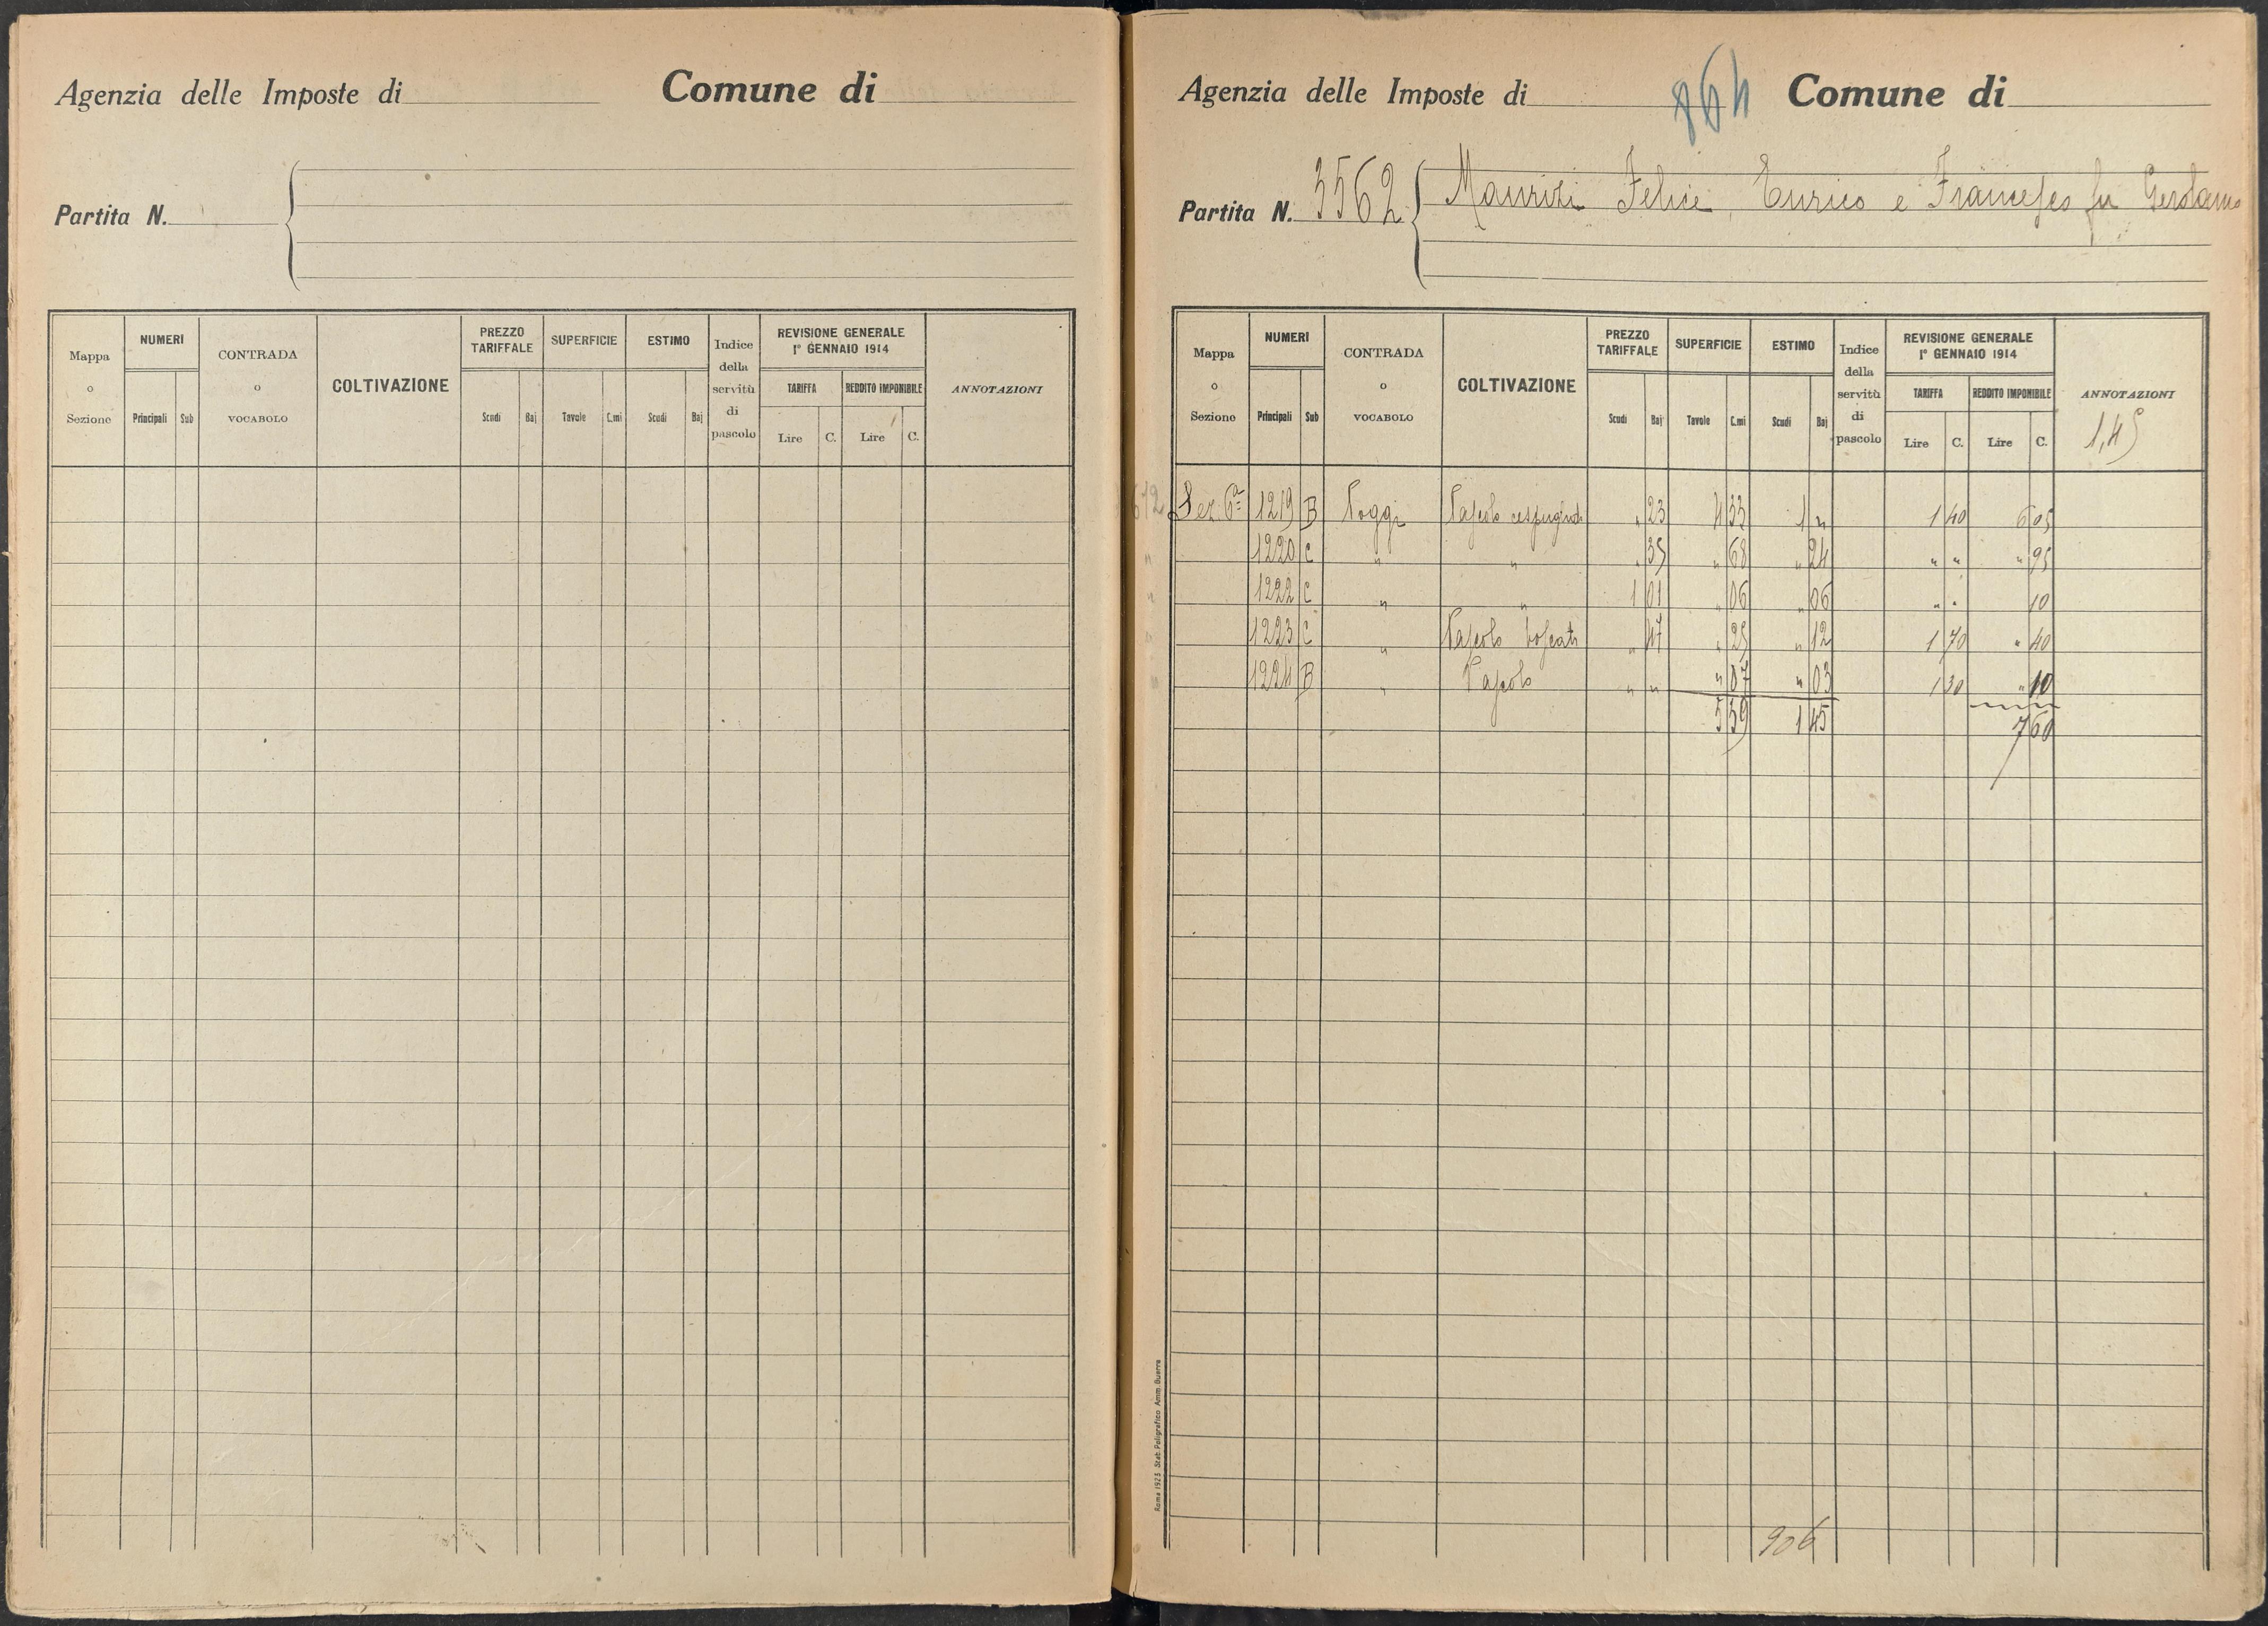 Agenzia delle Imposte di Comune di
Partita N.
Mappa o Sezione NUMERI Principali Sub CONTRADA o VOCABOLO COLTIVAZIONE PREZZO TARIFFALE Scudi Baj SUPERFICIE Tavole C.mi ESTIMO Scudi Baj Indice della servitù di pascolo REVISIONE GENERALE 1° GENNAIO 1914 TARIFFA Lire C. REDDITO IMPONIBILE Lire C. ANNOTAZIONI
Agenzia delle Imposte di 864 Comune di
Partita N. 3562 Maurizi Felice, Enrico e Francesco fu Gerolamo
Mappa o Sezione NUMERI Principali Sub CONTRADA o VOCABOLO COLTIVAZIONE PREZZO TARIFFALE Scudi Baj SUPERFICIE Tavole C.mi ESTIMO Scudi Baj Indice della servitù di pascolo REVISIONE GENERALE 1° GENNAIO 1914 TARIFFA Lire C. REDDITO IMPONIBILE Lire C. ANNOTAZIONI
1,45
672 Sez. 6ª 1219 B Poggi Pascolo cespugliato " 23 4 33 1 " 1 40 6 05
" 1220 C " " " 35 " 68 " 24 " " " 95
" 1222 C " " 1 01 " 06 " 06 " " 10
" 1223 C " Pascolo boscato " 47 " 25 " 12 1 70 " 40
" 1224 B " Pascolo " " " 07 " 03 1 30 " 10
5 39 1 45 7 60
906
Roma 1925 Stab. Poligrafico Amm. Guerra